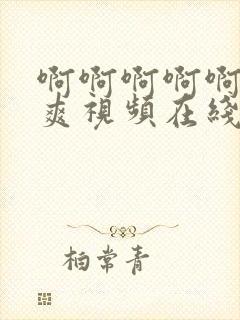 啊啊啊啊啊
爽視頻在綫
柏常青